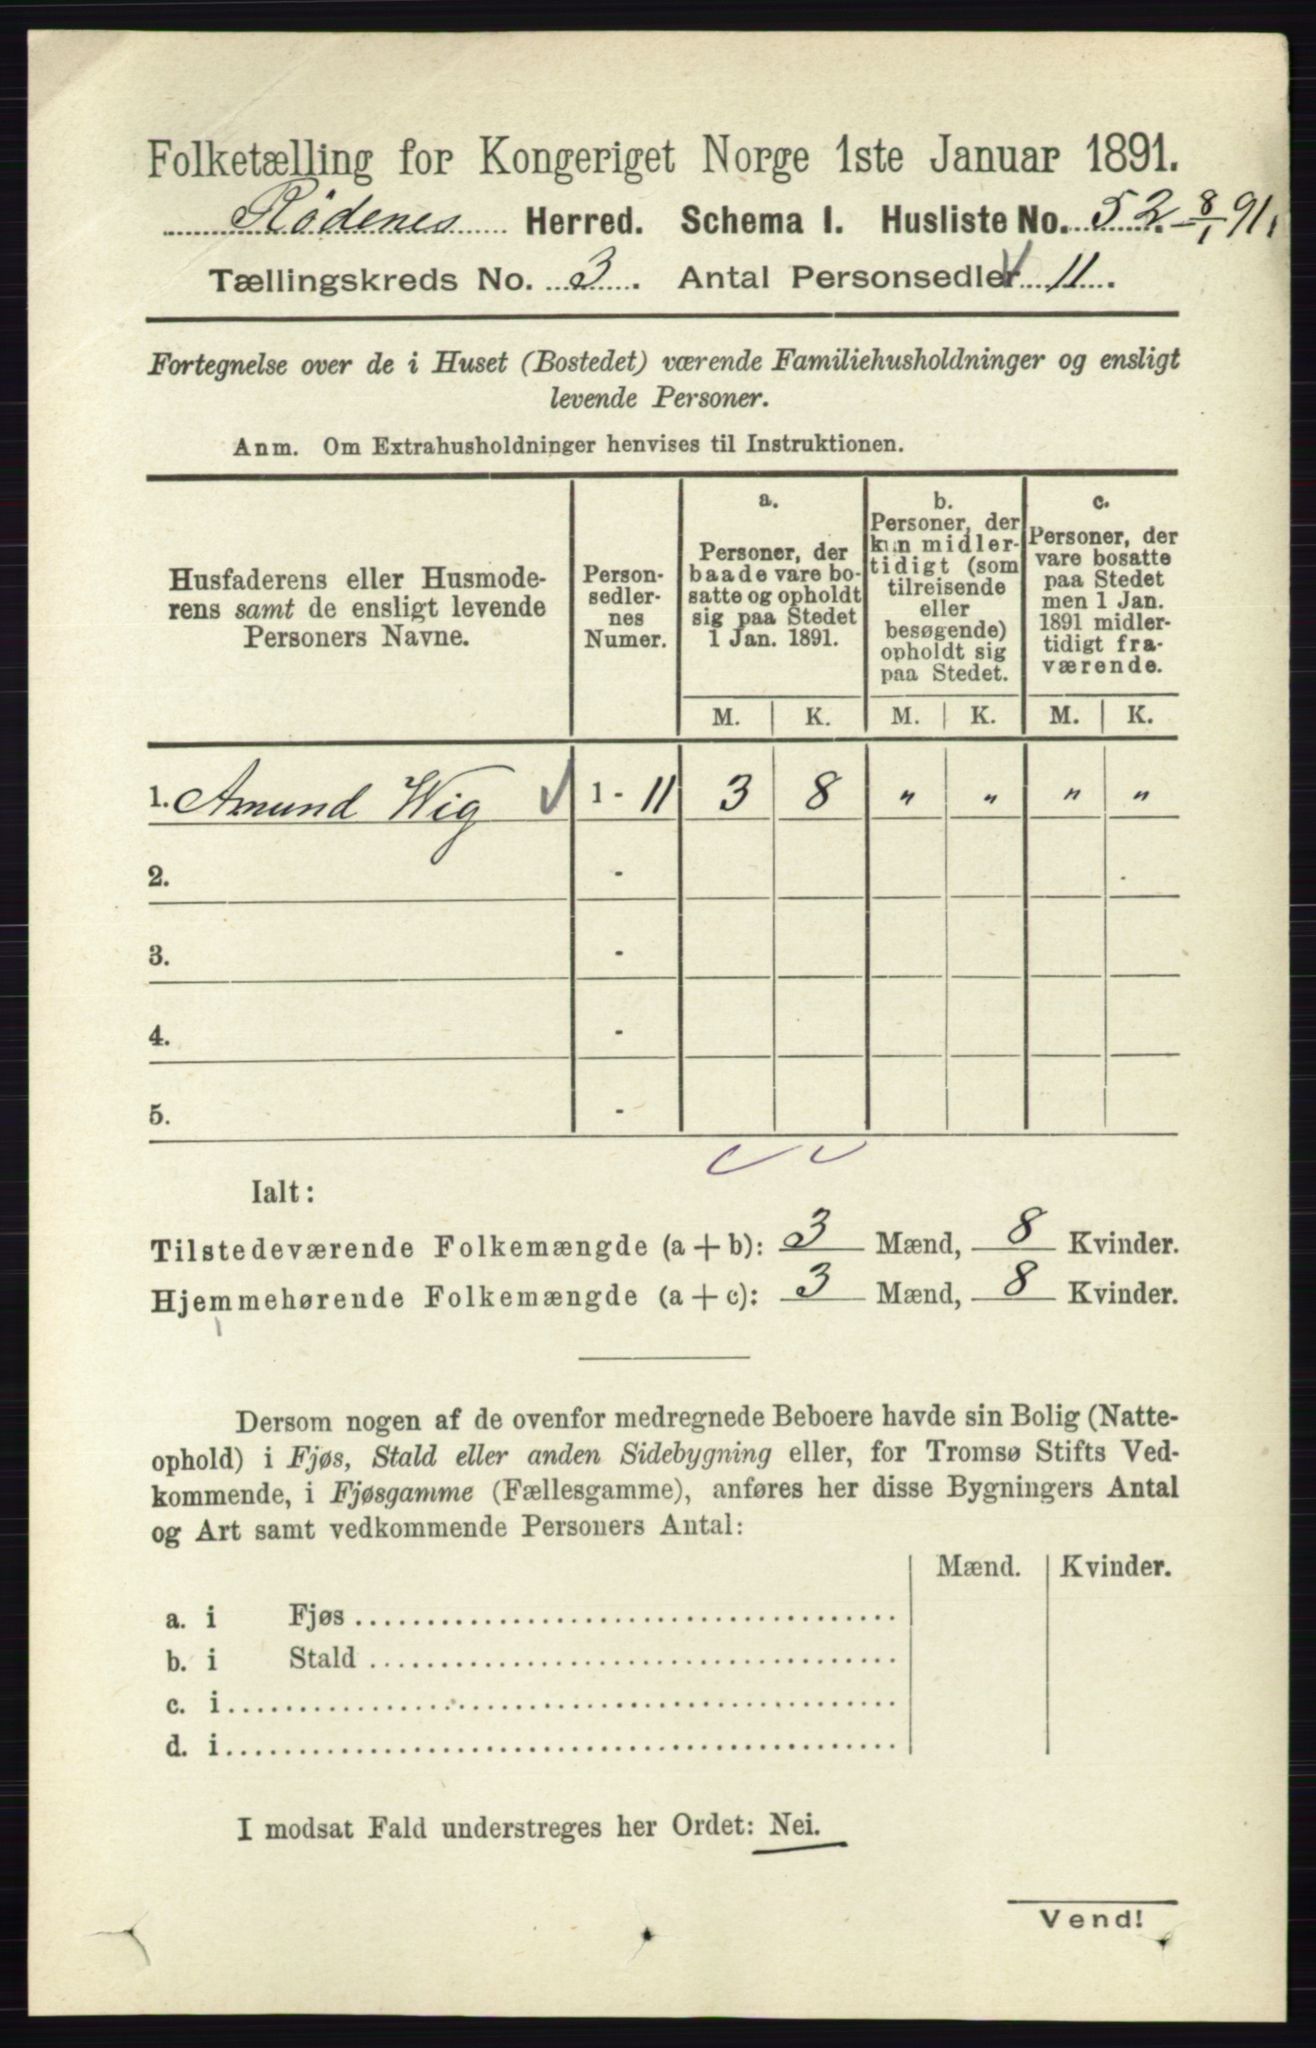 Folketælling for Kongeriget Norge 1ste Januar 1891.
Rödenes Herred. Schema I. Husliste No. 52 - 8/1 91.
Tællingskreds No. 3. Antal Personsedler 11.
Fortegnelse over de i Huset (Bostedet) værende Familiehusholdninger og ensligt
levende Personer.
Anm. Om Extrahusholdninger henvises til Instruktionen.
Husfaderens eller Husmode-
rens samt de ensligt levende
Personers Navne.
Person-
sedler-
nes
Numer.
a.
Personer, der
baade vare bo-
satte og opholdt
sig paa Stedet
1 Jan. 1891.
b.
Personer, der
kun midler-
tidigt (som
tilreisende
eller
besøgende)
opholdt sig
paa Stedet.
c.
Personer, der
vare bosatte
paa Stedet
men 1 Jan.
1891 midler-
tidigt fra-
værende.
M. K. M. K. M. K.
1. Amund Wig √ 1 - 11 3 8 „ „ „ „
2. -
3. -
4. -
5. -
Ialt:
Tilstedeværende Folkemængde (a + b): 3 Mænd, 8 Kvinder.
Hjemmehørende Folkemængde (a + c): 3 Mænd, 8 Kvinder.
Dersom nogen af de ovenfor medregnede Beboere havde sin Bolig (Natte-
ophold) i Fjøs, Stald eller anden Sidebygning eller, for Tromsø Stifts Ved-
kommende, i Fjøsgamme (Fællesgamme), anføres her disse Bygningers Antal
og Art samt vedkommende Personers Antal:
Mænd. Kvinder.
a. i Fjøs
b. i Stald
c. i
d. i
I modsat Fald understreges her Ordet: Nei.
Vend!